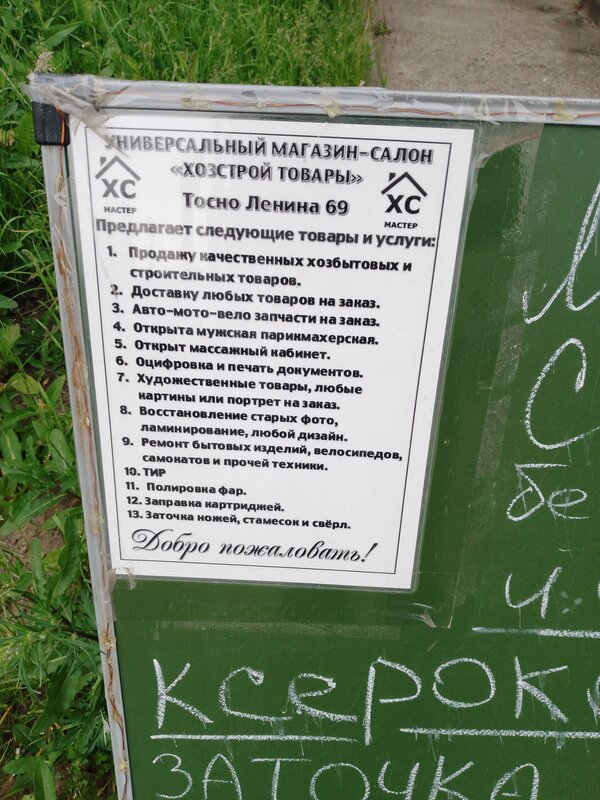 УНИВЕРСАЛЬНЫЙ МАГАЗИН-САЛОН
«ХОЗСТРОЙ ТОВАРЫ»
ХС
МАСТЕР
Тосно Ленина 69
ХС
МАСТЕР
Предлагает следующие товары и услуги:
1. Продажу качественных хозбытовых и
строительных товаров.
2. Доставку любых товаров на заказ.
3. Авто-мото-вело запчасти на заказ.
4. Открыта мужская парикмахерская.
5. Открыт массажный кабинет.
6. Оцифровка и печать документов.
7. Художественные товары, любые
картины или портрет на заказ.
8. Восстановление старых фото,
ламинирование, любой дизайн.
9. Ремонт бытовых изделий, велосипедов,
самокатов и прочей техники.
10. ТИР
11. Полировка фар.
12. Заправка картриджей.
13. Заточка ножей, стамесок и свёрл.
Добро пожаловать!
ЗАТОЧКА